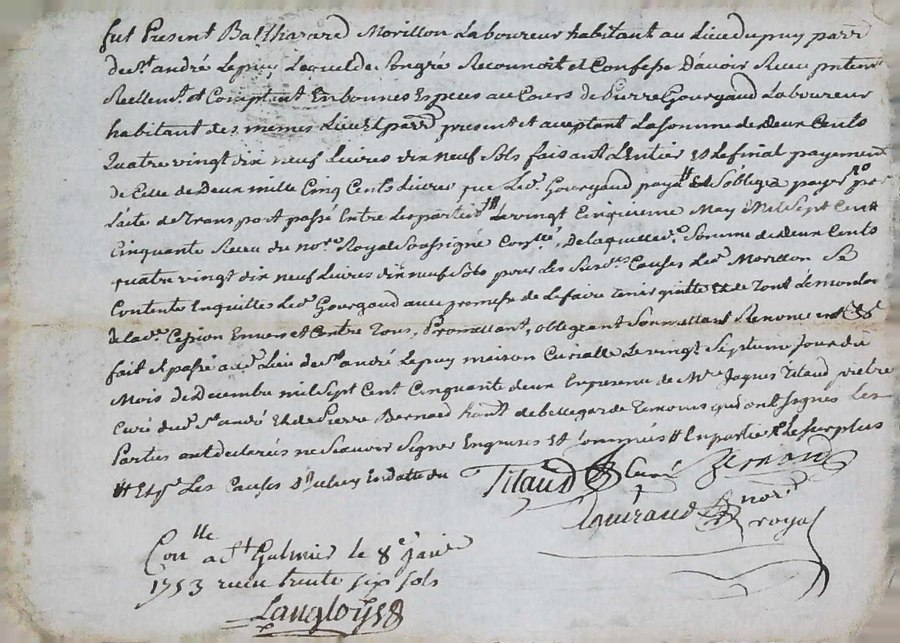 fut Present Balthazard Morillon Laboureur habitant au Lieu du puy parr.
de St. andré Le puy Lequel de Son gré Reconnoit et Confesse D'avoir Receu pntem
Reellemt. et Comptant En bonnes Especes au Cours de Pierre Gourgaud Laboureur
habitant des mêmes Lieu Et parr. present et aceptant La somme de deux Cents
Quatre vingt dix neuf Livres dix neuf Sols faisant L'Entier Et Le final payement
de Celle de Deux mille Cinq Cents Livres que Led. Gourgaud Sobligea payer par
L'acte de Transport passé Entre Les parties # Le vingt Cinquieme May Mil Sept Cent
Cinquante Receu du nore. Royal Soussigné Conllé, De laquelle d. Somme de deux Cents
quatre vingt dix neuf Livres dix neuf Sols pour les Susd. Causes Led. Morillon Se
Contente En quitte Led. Gourgaud avec promesse de Le faire Tenir quitte Et de Tout
de lad. Cession Envers et Contre Tous, Promettant, obligeant Soumettant Renoncant &
fait et passé aud. Lieu de St. andré Le puy maison Curialle Le vingt Septieme Jour du
Mois de decembre mil Sept Cent Cinquante deux En presence de Mre Jaques Titaud prêtre
Curé dud. St. andré Et de Pierre Bernard de bellegarde Temoins qui ont Signés Les
Parties ont declarés ne Scavoir Signer Enquises Et Sommées # En partie Le Surplus
# Et pr. Les Causes En datte du
Titaud Curé Bernard
nore. royal
Conlle a St Galmier le 8e janvier
1753 receu trente six sols
Langloys